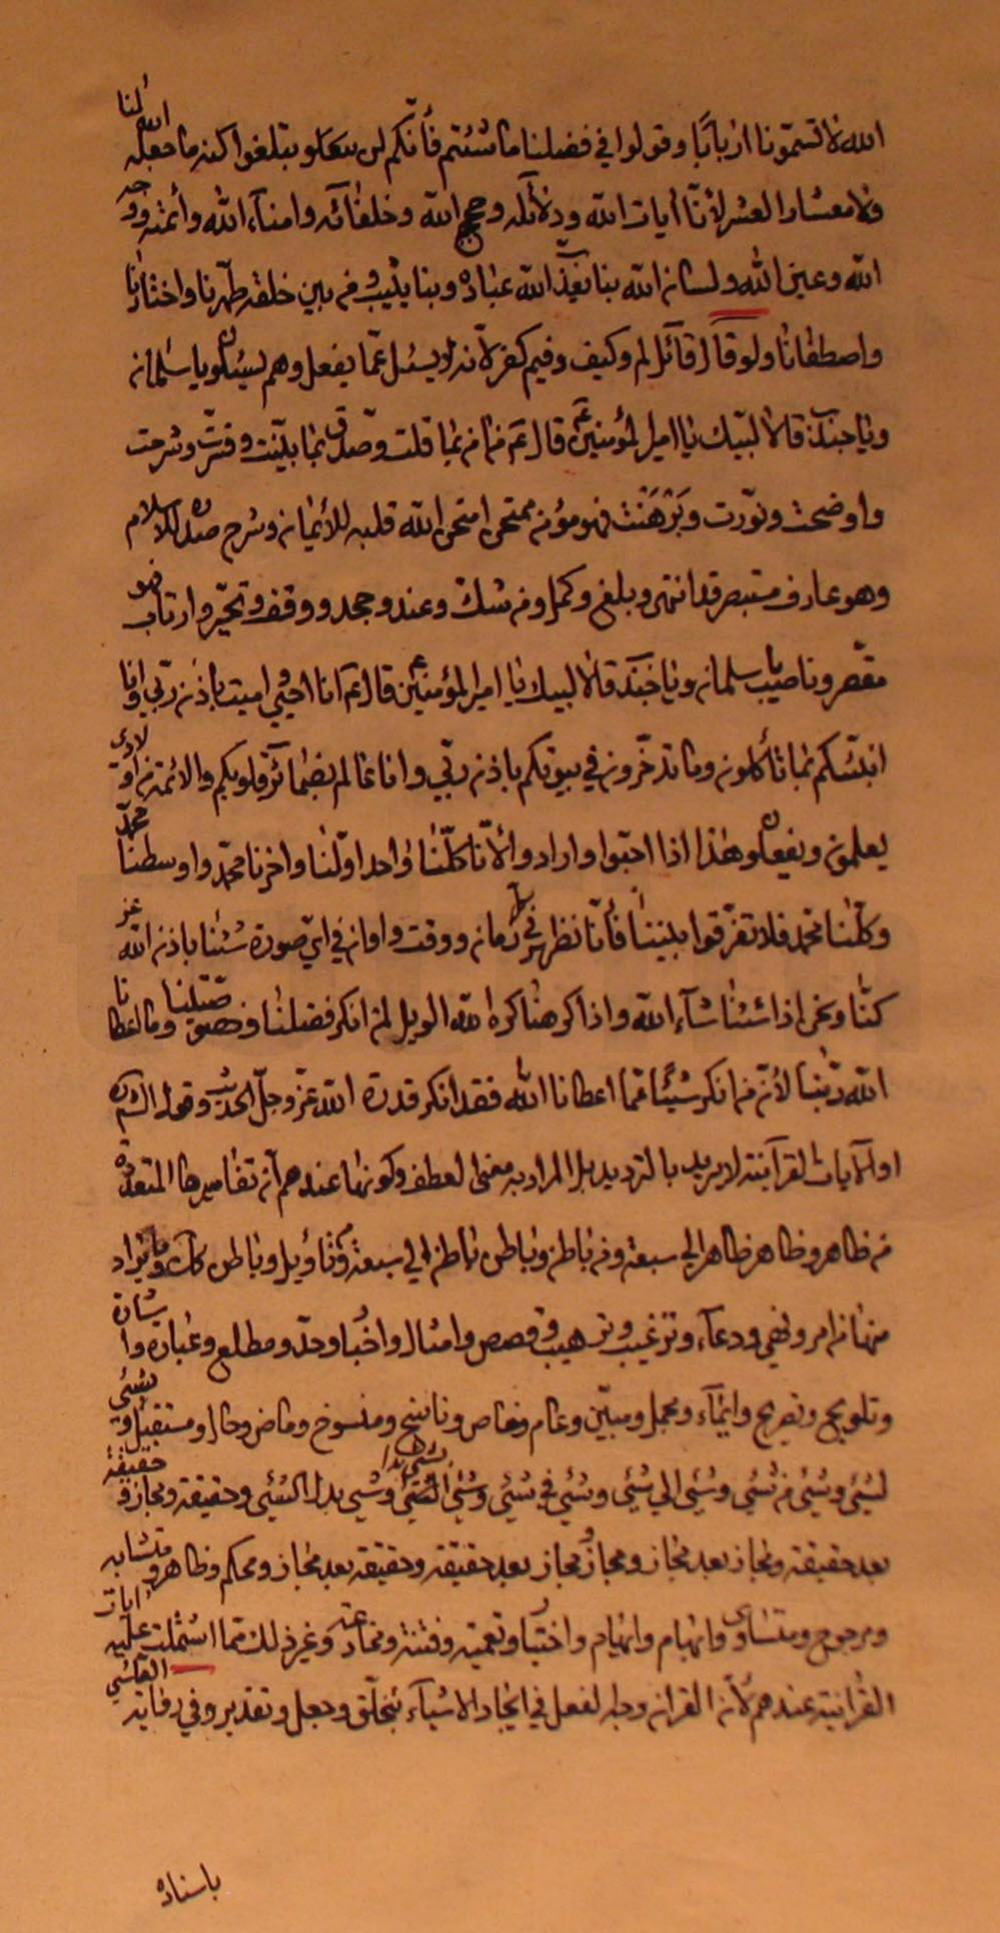 الله لا تسمّونا اربابًا وقولوا في فضلنا ما شئتم فأنّكم لن تبلغوا كنه ما جعله الله لنا
ولا معشار العشر لأنّا آيات الله ودلائله وحجج الله وخلفائه وامناء الله وأئمته ووجه
الله وعين الله ولسان الله بنا يعذّب الله عباده وبنا يثيب ومن بين خلقه طهّرنا واختارنا
واصطفانا ولو قال قائل لم وكيف وفيم كفر لأنه لا يسئل عمّا يفعل وهم يسئلون يا سلمان
ويا جندب قالا لبّيك يا امير المؤمنين ع قال ع من امن بما قلت وصدّق بما بيّنت وفسّرت وشرحت
واوضحت ونوّرت وبَرْهَنْت فهو مؤمن ممتحن امتحن الله قلبه للأيمان وشرح صدره للاسلام
وهو عارف مستبصر قد انتهى وبلغ وكمل ومن شكّ وعند وجحد ووقف وتحيّر وارتاب فهو
مقصّر وناصب يا سلمان ويا جندب قالا لبيك يا امير المؤمنين ع قال ع انا احيي واميت باذن ربّي وانا
انبّئكم بما تأكلون وما تدّخرون في بيوتكم باذن ربّي وانا عالم بضمائر قلوبكم والائمة من اولادي
يعلمون ويفعلون هذا اذا احبّوا وارادوا لأنّا كلّنا واحد اوّلنا واخرنا محمّد واوسطنا محمّد
وكلّنا محمد فلا تفرّقوا بيننا فأنّا نظهر في كل زمان ووقت واوان في ايّ صورة شئنا باذن الله عز
كنّا ونحن اذا شئنا شاء الله واذا كرهنا كره الله الويل لمن انكر فضلنا وخصوصيّتنا وما اعطانا
الله ربّنا لأنّ من انكر شيئًا ممّا اعطانا الله فقد انكر قدرة الله عزّ وجلّ الحديث
او الآيات القرآنية لا يريد بالترديد بل المراد به معنى العطف وكونها عندهم أنّ تفاسيرها المتعدّدة
من ظاهر وظاهر ظاهر الى سبعة ومن باطن وباطن باطن الى سبعة ومن تأويل وباطن وما يراد
منها من امر ونهي ودعاء وترغيب وترهيب وقصص وامثال واخبار وحدّ ومطلع وعبارة واشارة
وتلويح وتصريح وايماء ومجمل ومبيّن وعام وخاص وناسخ ومنسوخ وماض وحال ومستقبل وشيئ
لشيئ وشيئ من شيئ وشيئ الى شيئ وشيئ في شيئ وشيئ وشيئ بدل الشيئ وحقيقة ومجاز وحقيقة
بعد حقيقة ومجاز بعد مجاز ومجاز مجاز بعد حقيقة وحقيقة بعد مجاز ومحكم وظاهر ومتشابه
ومرجوح ومتساوي وابهام وايهام واختبار وتعمية وفتنة ومخادعة وغير ذلك ممّا اشتملت عليه ايات
القرآنية عندهم لأنّ القران وجه الفعل في ايجاد الاشياء بتخلّق وجعل وتقدير وفي رواية القاسم
باسناده